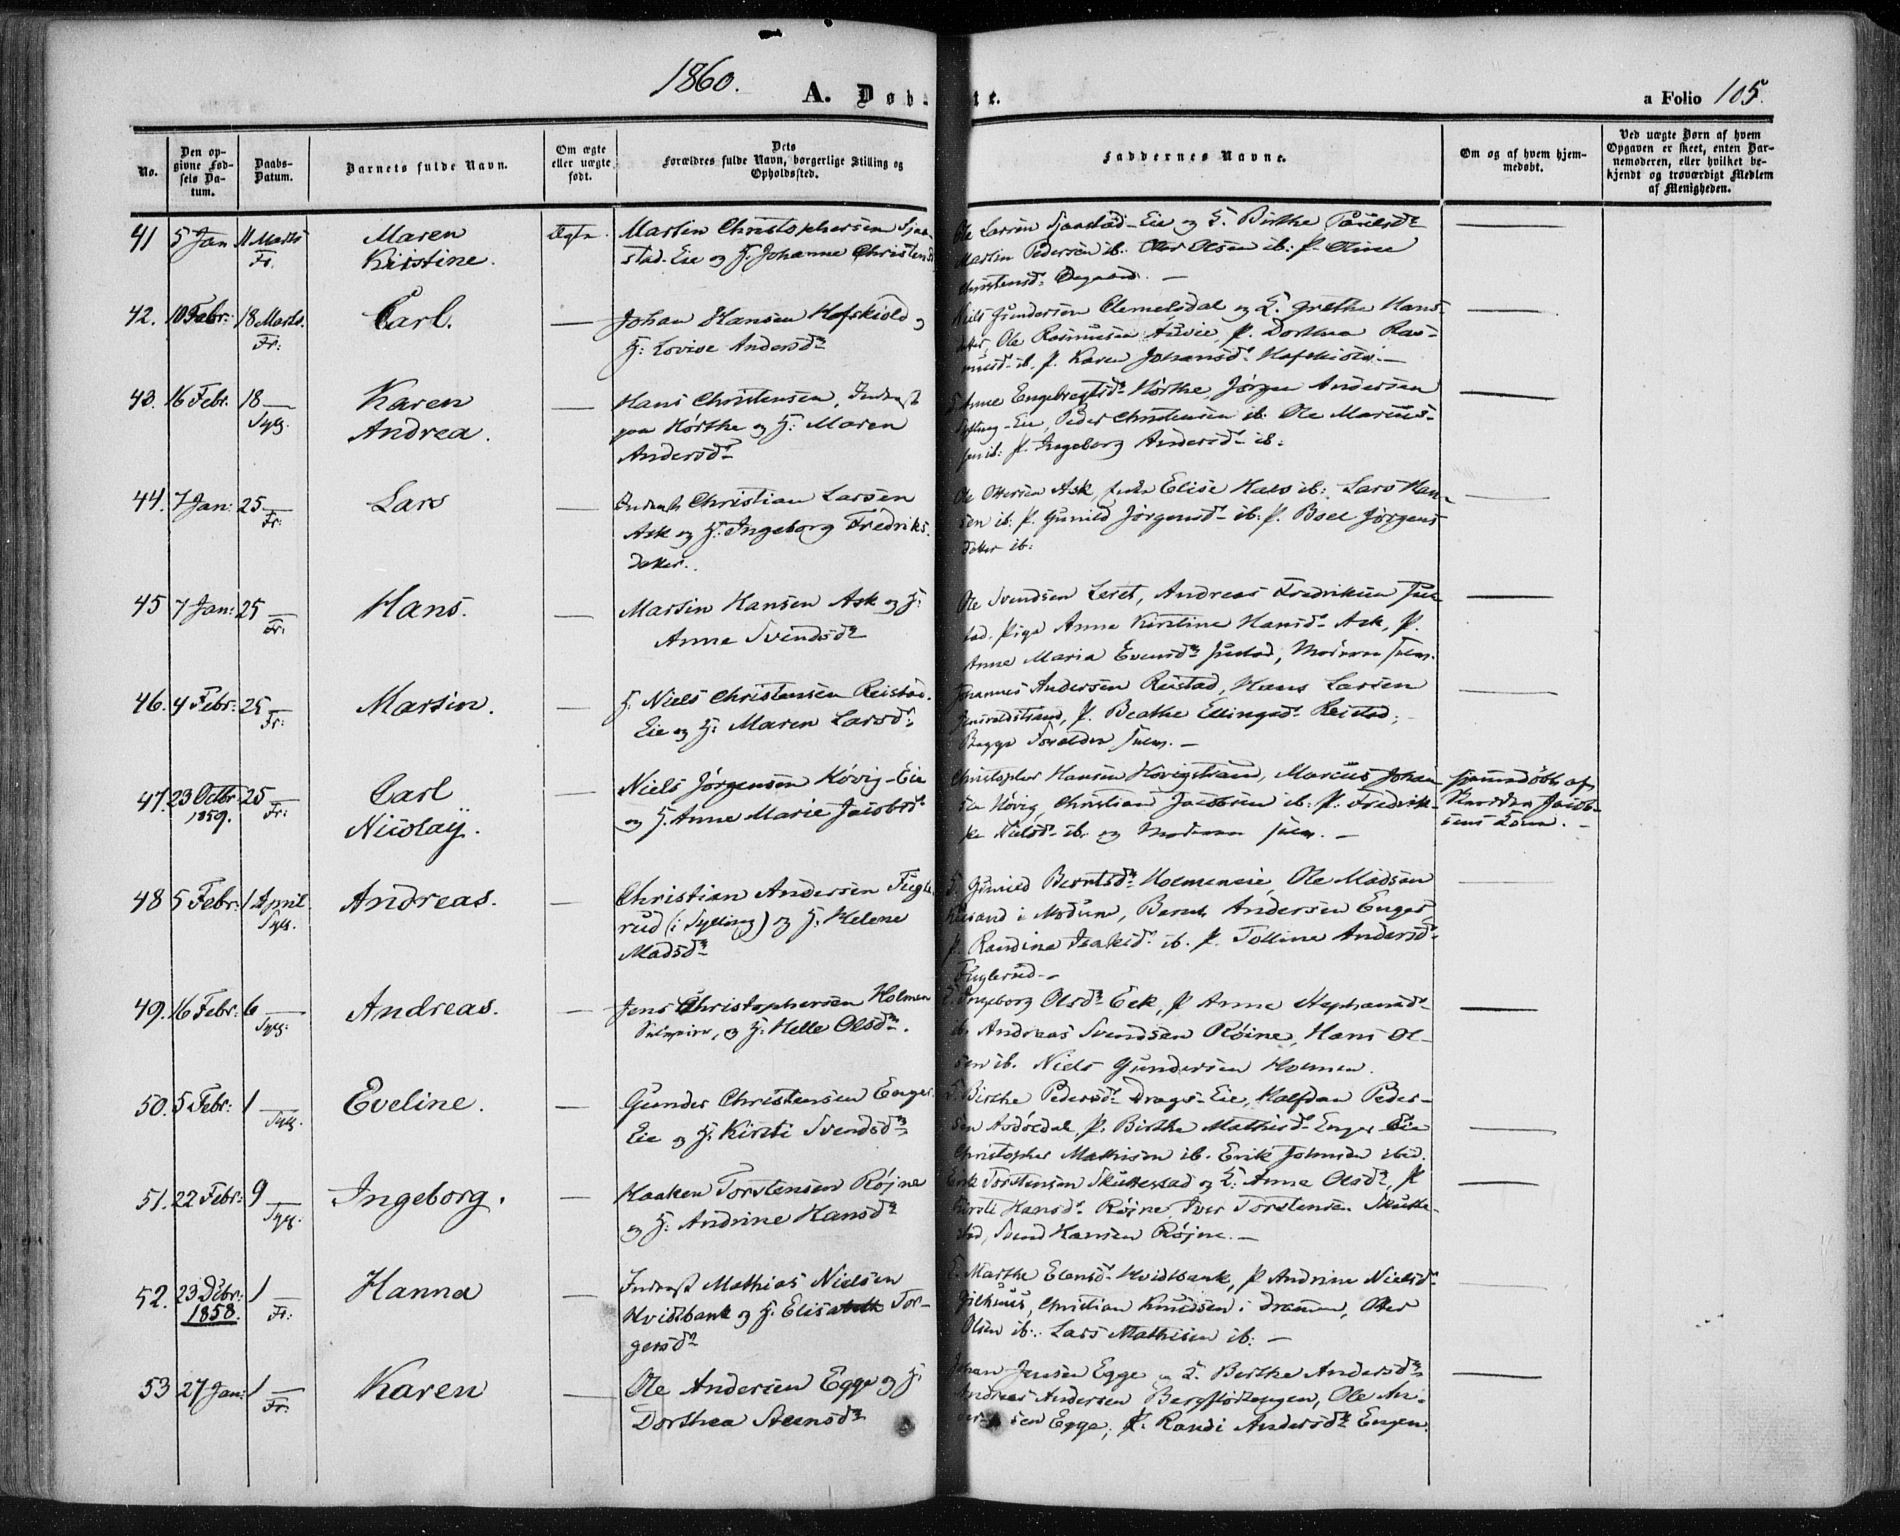 1860.
A. Døb-
te.
a Folio 105.
No.
Den op-
givne Fød-
sels Da-
tum.
Daabs-
Datum.
Barnets fulde Navn.
Om ægte
eller uægte
født.
Dets
Forældres fulde Navn, borgerlige Stilling og
Opholdssted.
Faddernes Navne.
Om og af hvem hjem-
medøbt.
Ved uægte Børn af hvem
Opgaven er skeet, enten Bar-
nemoderen, eller hvilket be-
kjendt og troværdigt Medlem
af Menigheden.
41 5 Jan 11 Marts
Fr.
Maren
Kirstine.
Ægte.
Martin Christophersen
stad Eie og H. Johanne Christensd
Ole Larsen Sjaastad-Eie og H. Birthe Paulsdr
Martin Pedersen ib. Otter Olsen ib: P. Oline
Christensdr Øegaard. —
42. 10 Febr: 18 Marts.
Fr:
Carl.
Johan Hansen Hafskiold og
H: Lovise Andersdr
Niels Gundersen Clemetsdal og H. Grethe Hans-
datter, Ole Rasmusen P. Dorthea Ras-
musd. ib. P. Karen Johansdr. Hafskiold. —
43. 16 Febr. 18 —
Sylg.
Karen
Andrea.
Hans Christensen, Inderst
paa Hørthe og H: Maren
Andersdr
Anne Engebregtsdr Hørthe, Jørgen Andersen
Sylling-Eie, Peder Christensen ib. Ole Marius-
sen ib: P. Ingeborg Andersdr ib:
44. 7 Jan: 25 —
Fr:
Lars
Inderst Christian Larsen
Ask og H: Ingeborg Fredriks-
datter.
Ole Ottersen Ask, Elise ib: Lars Han-
sen ib: P. Gunild Jørgensdr ib: P. Boel Jørgens
datter ib:
45 7 Jan: 25 —
Fr:
Hans.
Martin Hansen Ask og H:
Anne Svendsdr
Ole Svendsen Leret, Andreas Fredriksen
Pige Anne Kirstine Hansdr Ask, P.
Anne Maria Evensdr Moderen selv.
46. 4 Febr: 25 —
Fr:
Martin.
H. Niels Christensen Reistad-
Eie og H: Maren Larsdr
Johannes Andersen Reistad, Hans Larsen
P. Beathe Ellingsdr Reistad;
Begge Forældre selv. —
47. 23 Octbr 25 —
1859. Fr:
Carl
Nicolay.
Niels Jørgensen Høvig-Eie
og H. Anne Marie Jacobsdr
Christopher Hansen Høvigstrand, Marcus Johan-
sen Høvig, Christian Jacobsen ib: P. Fredrik-
ke Nielsdr ib. og Moderen selv. —
hjemmedøbt af
Jacob-
sens Kone. —
48 5 Febr: 1 April
Sylg.
Andreas.
Christian Andersen Fugle-
rud (i Sylling) og H. Helene
Madsdr
Gunild Berntsdr Holmeneie, Ole Madsen
i Modum, Bernt Andersen Enger,
P. Randine Isaksdr ib. P. Tolline Andersdr
Fuglerud. —
49. 16 Febr: 6 —
Sylg:
Andreas.
Jens Christophersen Holmen
og H: Helle Olsdr.
Ingeborg Olsdr Eek, P Anne Stephansdr
ib. Andreas Svendsen Røine, Hans Ol-
sen ib. Niels Gundersen Holmen.
50. 5 Febr: 1 —
Sylg.
Eveline.
Gunder Christensen Enger-
Eie og H: Kirsti Svendsdr
Birthe Pedersdr Drags-Eie, Halfdan Peder-
sen P. Birthe Mathisdr Enger Eie
Christopher Mathisen ib. Erik Johnsen ibid.
51. 22 Febr: 9 —
Sylg.
Ingeborg.
Haaken Torstensen Røjne
og H: Andrine Hansdr
Erik Torstensen Skuttestad og H: Anne Olsdr, P
Kirsti Hansdr Røjne, Iver Torstensen Skutte-
stad, Svend Hansen Røjne. —
52. 23 Dcbr: 1 —
1858. Fr:
Hanna
Inderst Mathias Nielsen
Hvidtbank og H. Elisabeth Tor-
gersdr
Marthe Elensdr Hvidtbank, P Andrine Nielsdr
Gilhuus, Christian Knudsen i Drammen, Otter
Olsen ib: Lars Mathisen ib: —
53 27 Jan: 1 —
Fr:
Karen
Ole Andersen Egge og H:
Dorthea Steensdr
Johan Jensen Egge og H. Berthe Andersdr
Andreas Andersen Bergflødtengen, Ole An-
dersen Egge, P. Randi Andersdr Engen.